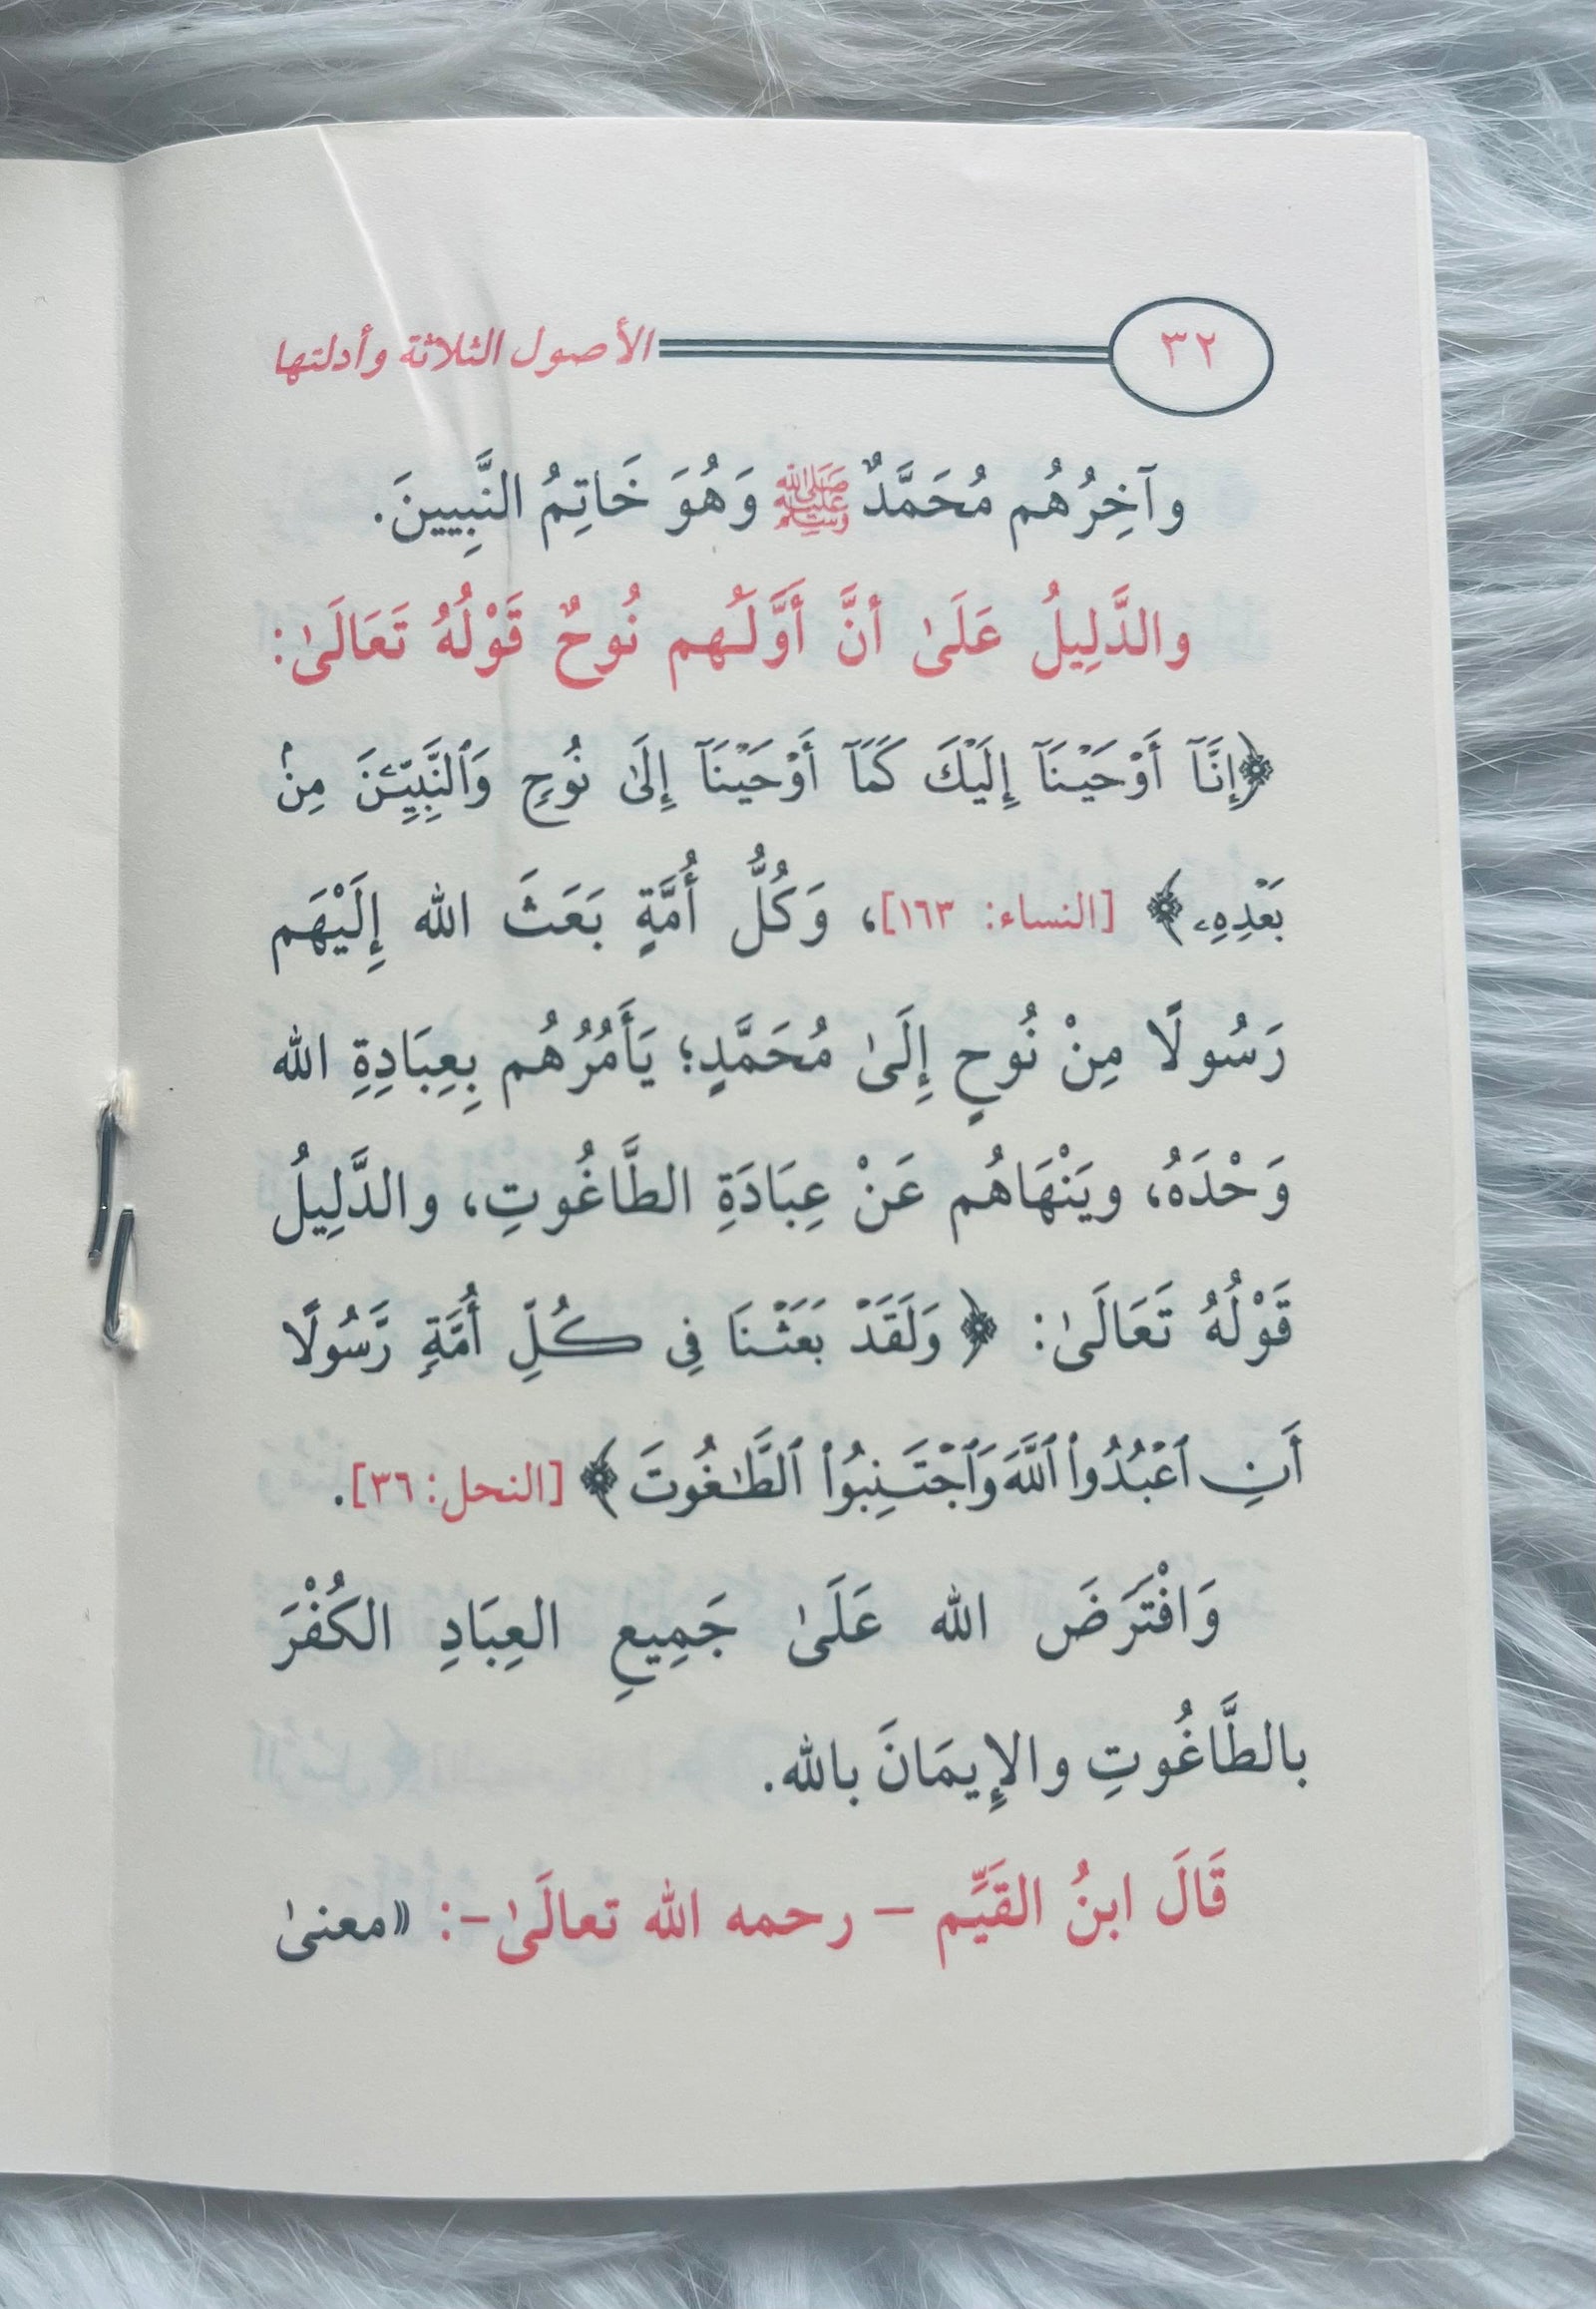 ٣٢ الأصول الثلاثة وأدلتها
وآخِرُهُم مُحَمَّدٌ ﷺ وَهُوَ خَاتِمُ النَّبِيينَ.
والدَّلِيلُ عَلَىٰ أنَّ أوَّلَهُم نُوحٌ قَوْلُهُ تَعَالَىٰ:
﴿إِنَّآ أَوْحَيْنَآ إِلَيْكَ كَمَآ أَوْحَيْنَآ إِلَىٰ نُوحٍ وَٱلنَّبِيِّـۧنَ مِنۢ
بَعْدِهِۦ﴾ [النساء: ١٦٣]، وَكُلُّ أُمَّةٍ بَعَثَ الله إِلَيْهَم
رَسُولًا مِنْ نُوحٍ إِلَىٰ مُحَمَّدٍ؛ يَأَمُرُهُم بِعِبَادِةِ الله
وَحْدَهُ، ويَنْهَاهُم عَنْ عِبَادَةِ الطَّاغُوتِ، والدَّلِيلُ
قَوْلُهُ تَعَالَىٰ: ﴿وَلَقَدْ بَعَثْنَا فِي كُلِّ أُمَّةٍ رَّسُولًا
أَنِ ٱعْبُدُوا۟ ٱللَّهَ وَٱجْتَنِبُوا۟ ٱلطَّـٰغُوتَ﴾ [النحل: ٣٦].
وَافْتَرَضَ الله عَلَىٰ جَمِيعِ العِبَادِ الكُفْرَ
بالطَّاغُوتِ والإِيمَانَ بالله.
قَالَ ابنُ القَيِّم – رحمه الله تعالَىٰ-: «معنىٰ